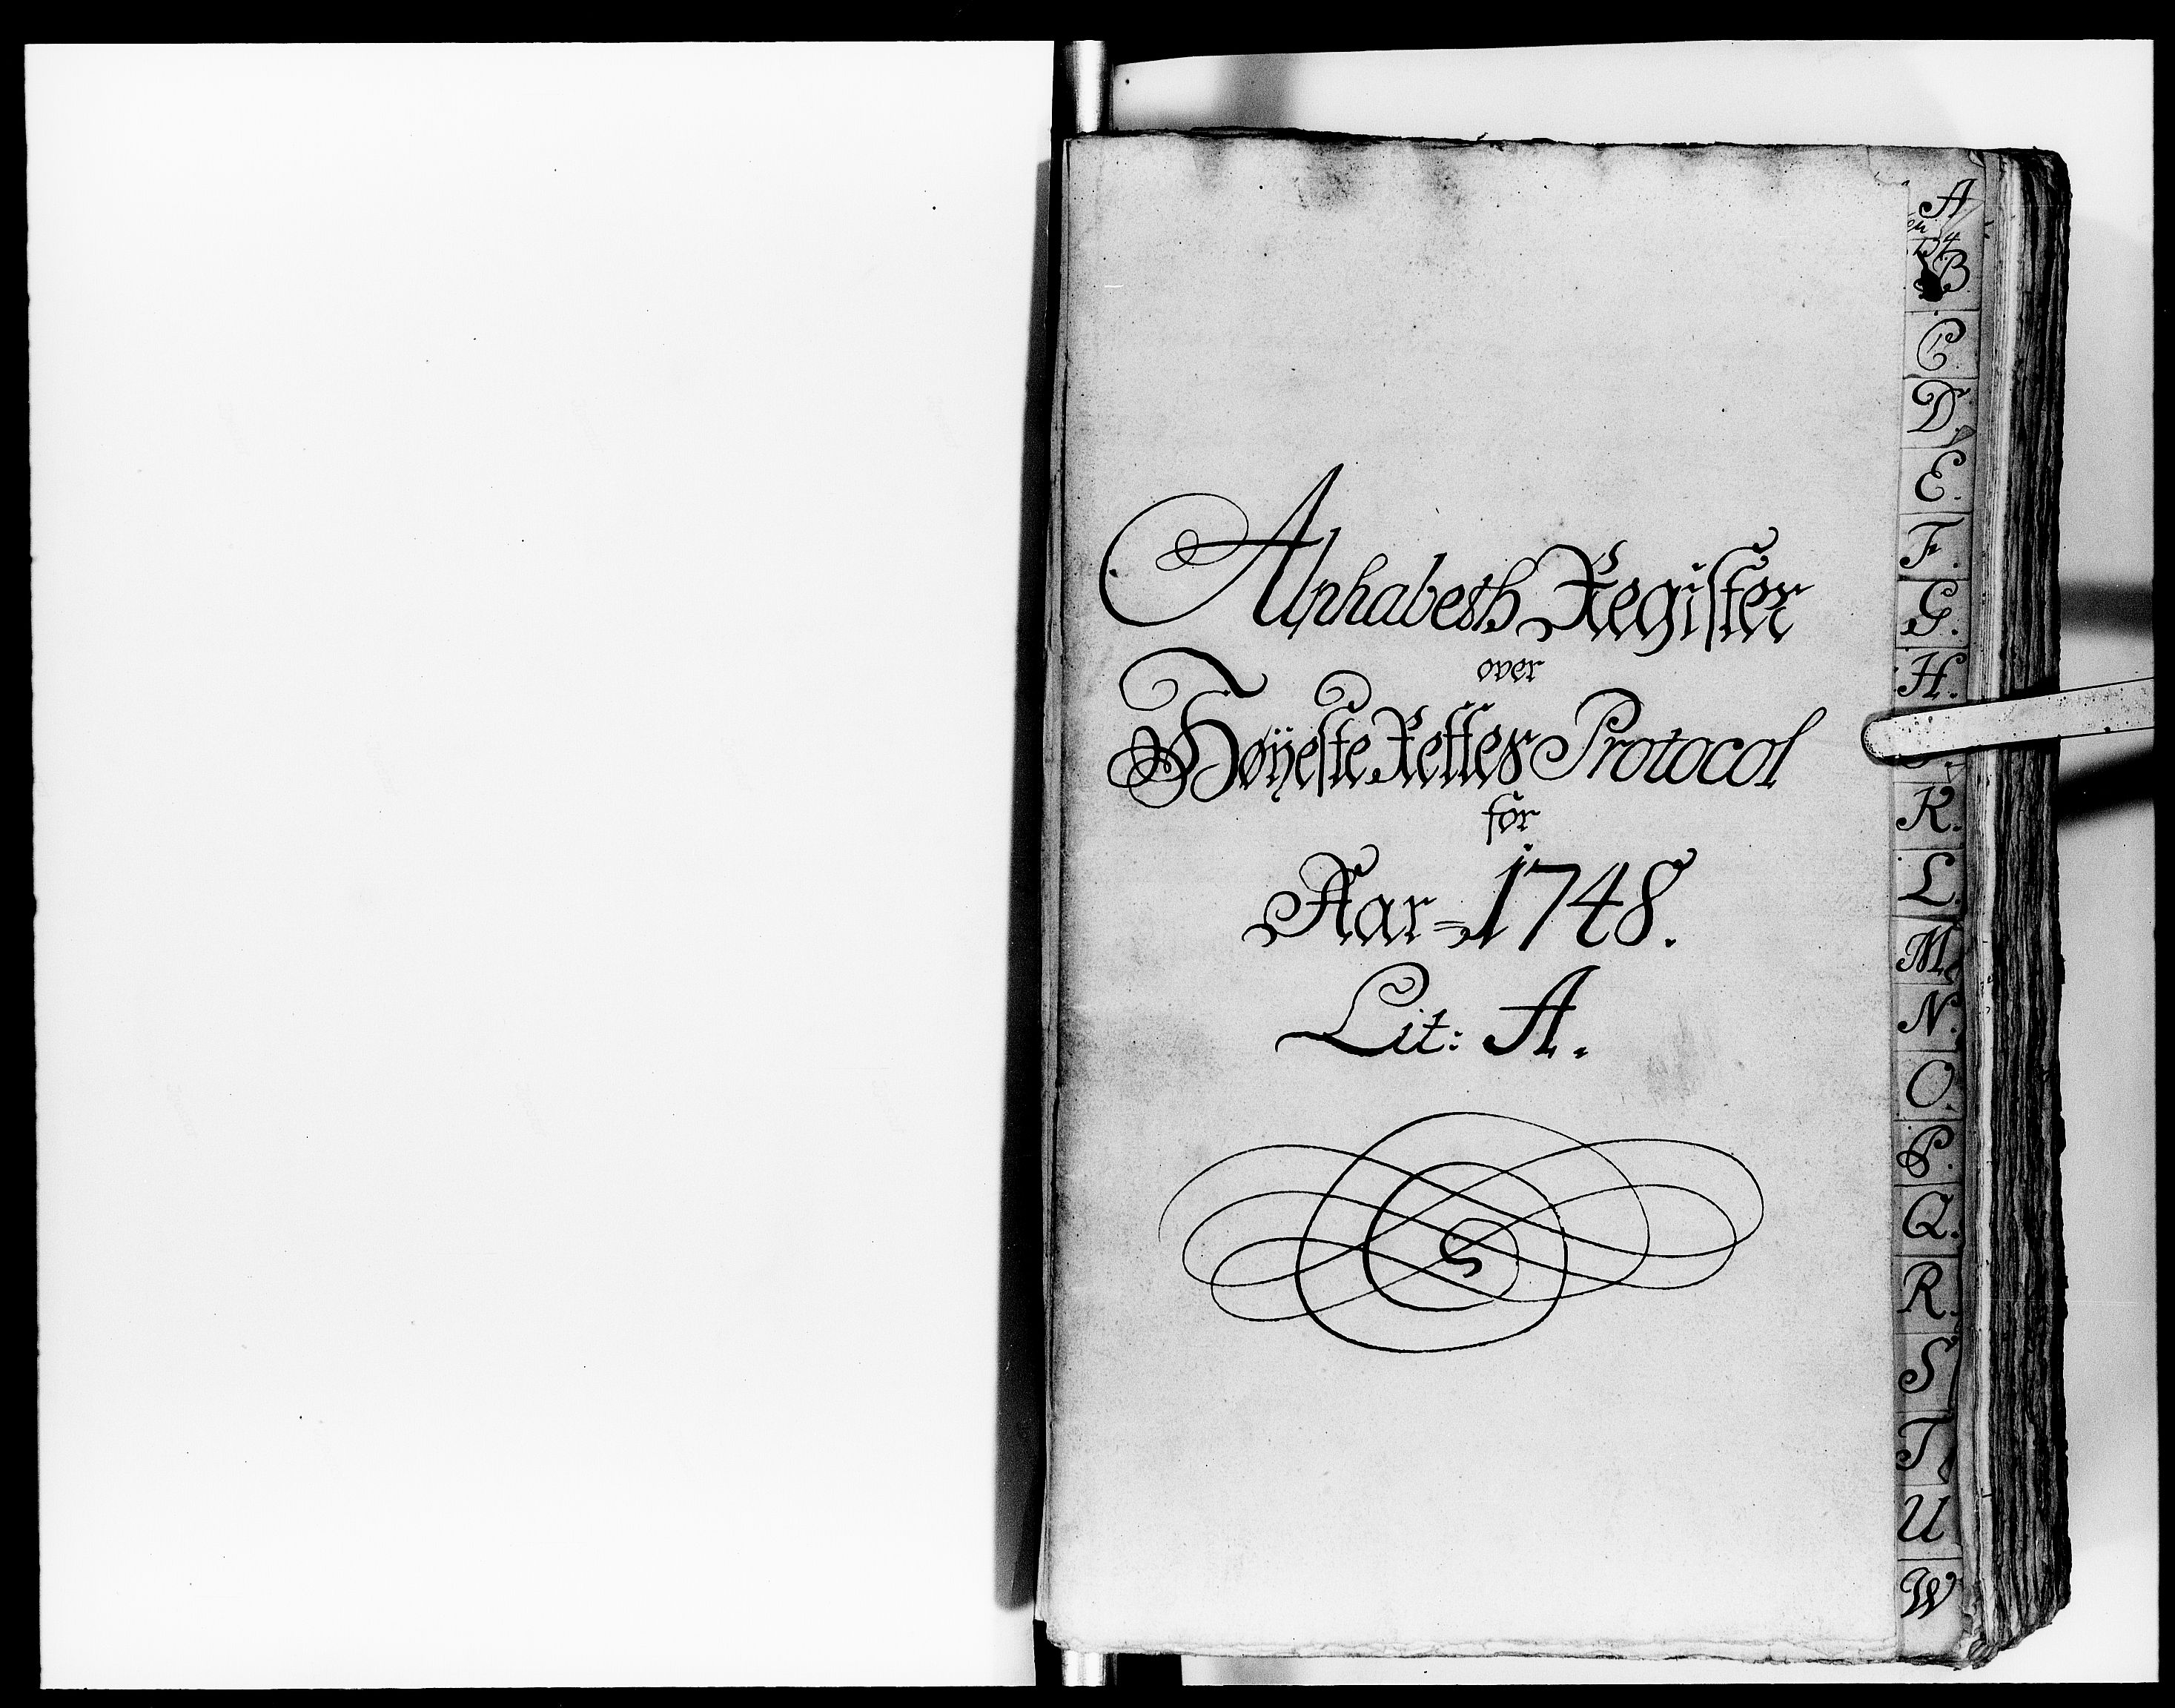 Alphabeth Register
over
Høÿeste Rettes Protocol
for
Aar=1748.
Lit: A.
A
B
C
D.
E.
F.
G.
H.
K.
L.
M
N.
O.
P.
Q.
R.
S
T
U
W